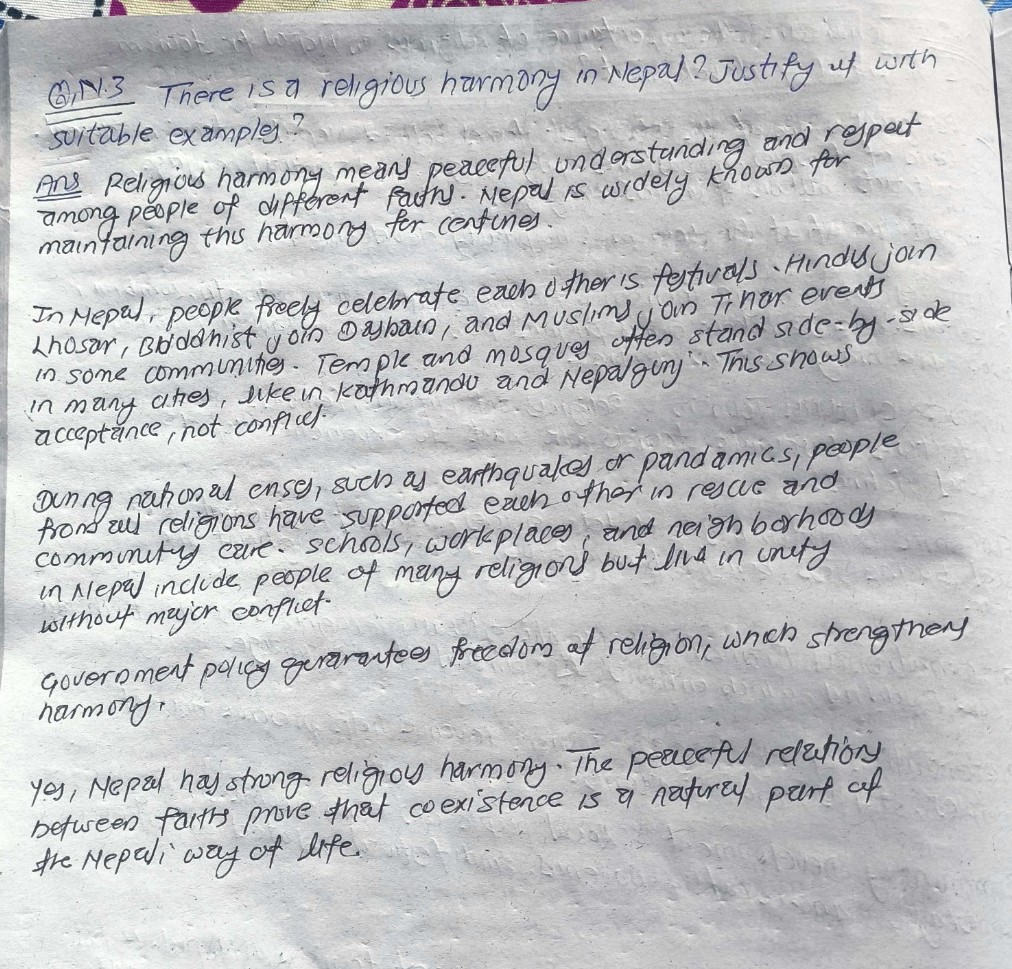 Q.N.3 There is a religious harmony in Nepal? Justify it with
suitable examples?
Ans Religious harmony means peaceful understanding and respect
among people of different faiths. Nepal is widely known for
maintaining this harmony for centuries.
In Nepal, people freely celebrate each other's festivals. Hindus join
Lhosar, Buddhist join Dashain, and Muslims join Tihar events
in some communities. Temple and mosques often stand side-by-side
in many cities, like in Kathmandu and Nepalgunj. This shows
acceptance, not conflict.
During national crises, such as earthquakes or pandamics, people
from all religions have supported each other in rescue and
community care. schools, workplaces, and neighborhoods
in Nepal include people of many religions but live in unity
without major conflict.
Government policy gurarantees freedom of religion, which strengthens
harmony.
Yes, Nepal has strong religious harmony. The peaceful relations
between faiths prove that coexistence is a natural part of
the Nepali way of life.